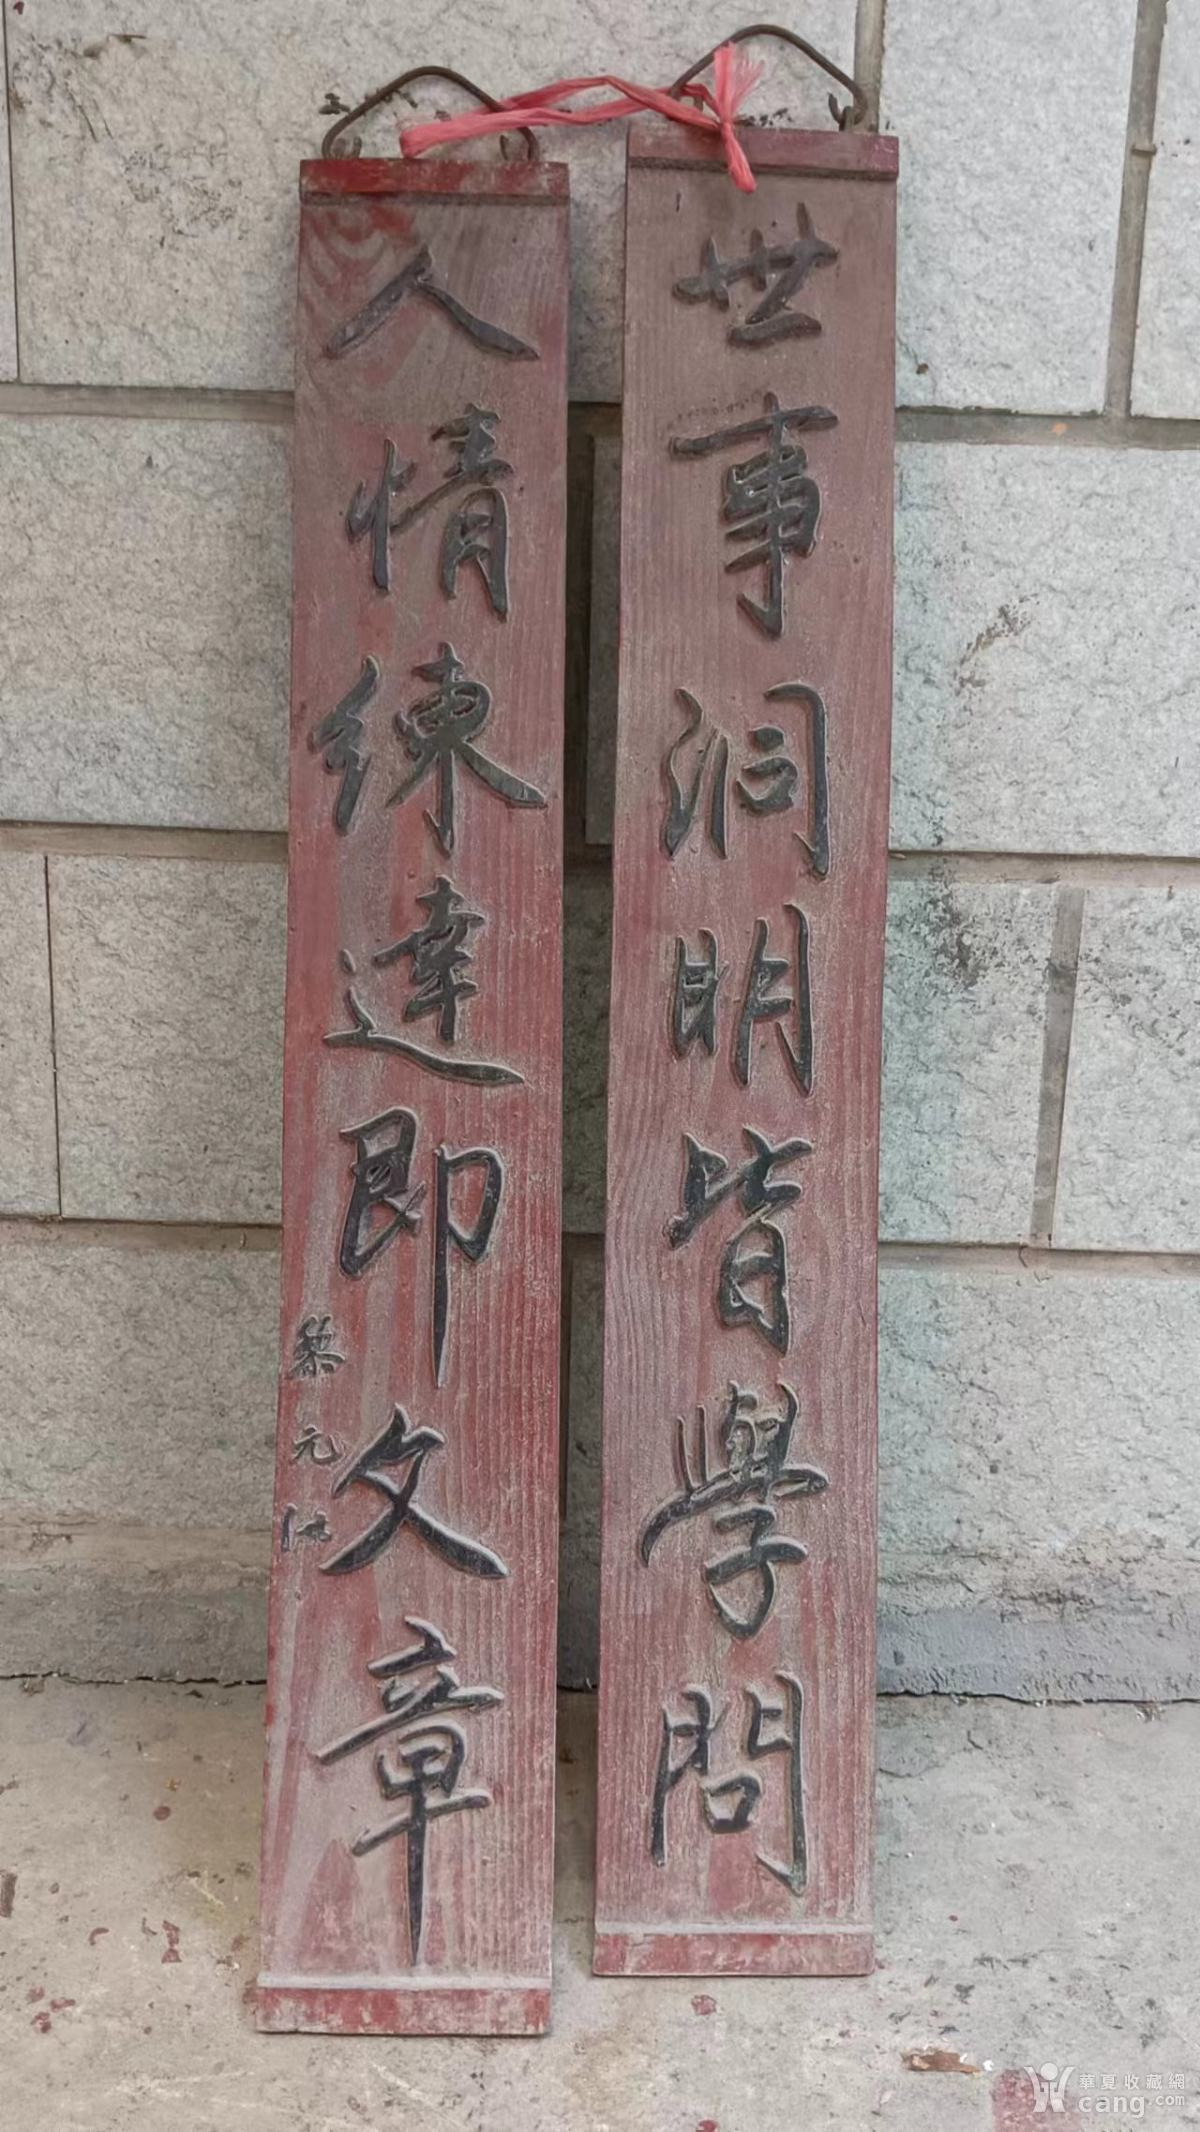 世事洞明皆學問
人情練達即文章
黎元洪
華夏收藏網
cang.com